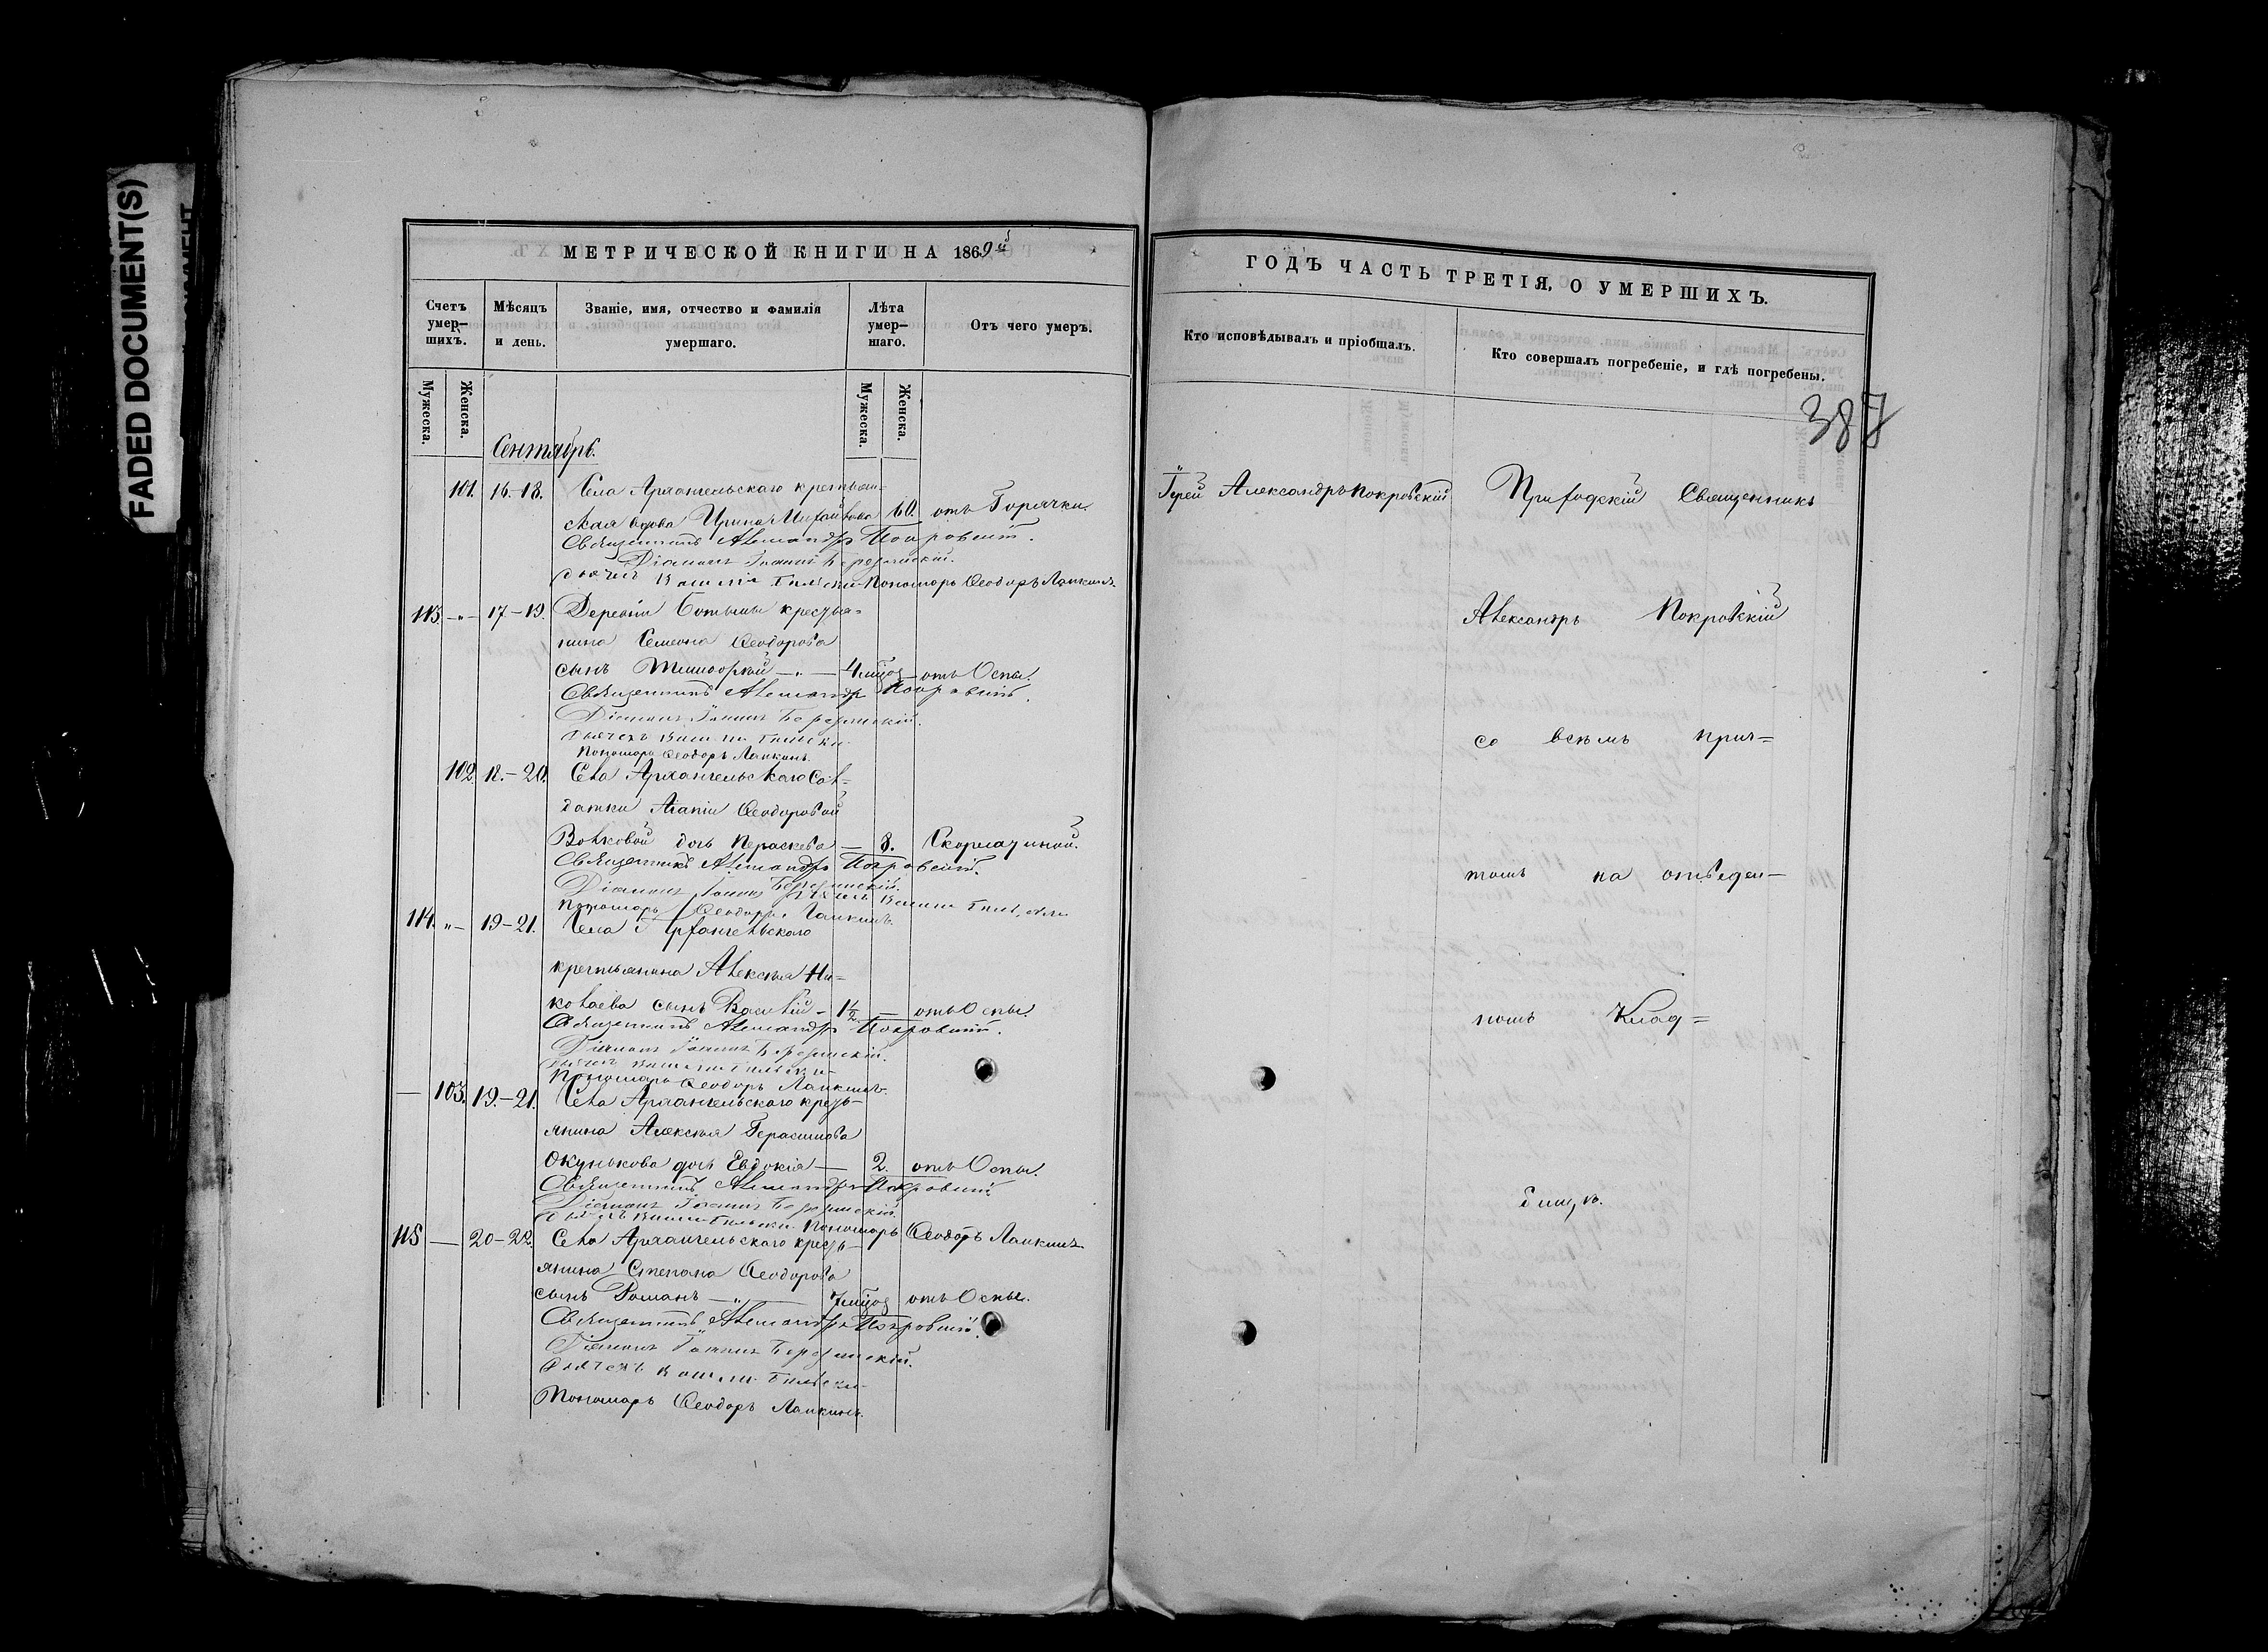 FADED DOCUMENT(S)
МЕТРИЧЕСКОЙ КНИГИ НА 1869й
Счетъ умер-шихъ.
Мѣсяцъ и день.
Званіе, имя, отчество и фамилія умершаго.
Лѣта умер-шаго.
Отъ чего умеръ.
Мужеска.
Женска.
Мужеска.
Женска.
Сентябрь.
101. 16.-18. Села Архангельскаго крестьян-
ская вдова Ирина Михайлова 60. отъ Горячки
Священникъ Александръ Покровскій.
Діаконъ Іоаннъ
Пономарь Ѳеодоръ Лапкинъ
113. -"- 17-19. Деревни крестья=
нина Семеона Ѳеодорова
сынъ Тимофей -"- 4 мѣсяц отъ Оспы.
Священникъ Александръ Покровскій.
Діаконъ Іоаннъ
Пономарь Ѳеодоръ Лапкинъ.
102. 18.-20. Села Архангельскаго Сол=
датки Агапіи Ѳеодоровой
Волковой дочь Параскева - 8. Скорлатиной.
Священникъ Александръ Покровскій.
Діаконъ Іоаннъ
Пономарь Ѳеодоръ Лапкинъ.
114. "- 19-21. Села Архангельскаго
крестьянина Алексѣя Ни=
колаева сынъ Василій - 1½ - отъ Оспы.
Священникъ Александръ Покровскій.
Діаконъ Іоаннъ
Пономарь Ѳеодоръ Лапкинъ.
- 103. 19.-21. Села Архангельскаго кресть-
янина Алексѣя Герасимова
Окунькова дочь Евдокія - 2. отъ Оспы.
Священникъ Александръ Покровскій
Діаконъ Іоаннъ
Пономарь Ѳеодоръ Лапкинъ
115 - 20-22. Села Архангельскаго кресть-
янина Степана Ѳеодорова
сынъ Романъ -"- 7 мѣсяц отъ Оспы.
Священникъ Александръ Покровскій.
Діаконъ Іоаннъ
Пономарь Ѳеодоръ Лапкинъ.
ГОДЪ ЧАСТЬ ТРЕТІЯ, О УМЕРШИХЪ.
Кто исповѣдывалъ и пріобщалъ.
Кто совершалъ погребеніе, и гдѣ погребены.
387
Іерей Александръ Покровскій
Приходскій Священникъ
Александръ Покровскій
со всѣмъ прич=
томъ на отведен-
номъ Клад=
бищѣ.